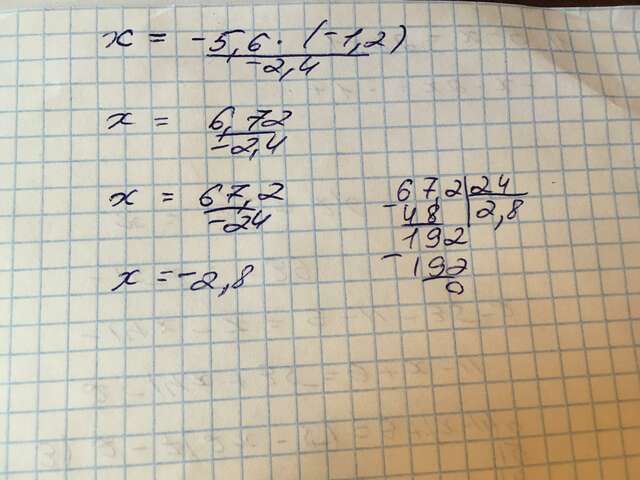 x = -5,6 · (-1,2)
-2,4
x = 6,72
-2,4
x = 67,2
-24
x = -2,8
-67,2 | 24
48 | 2,8
192
-192
0